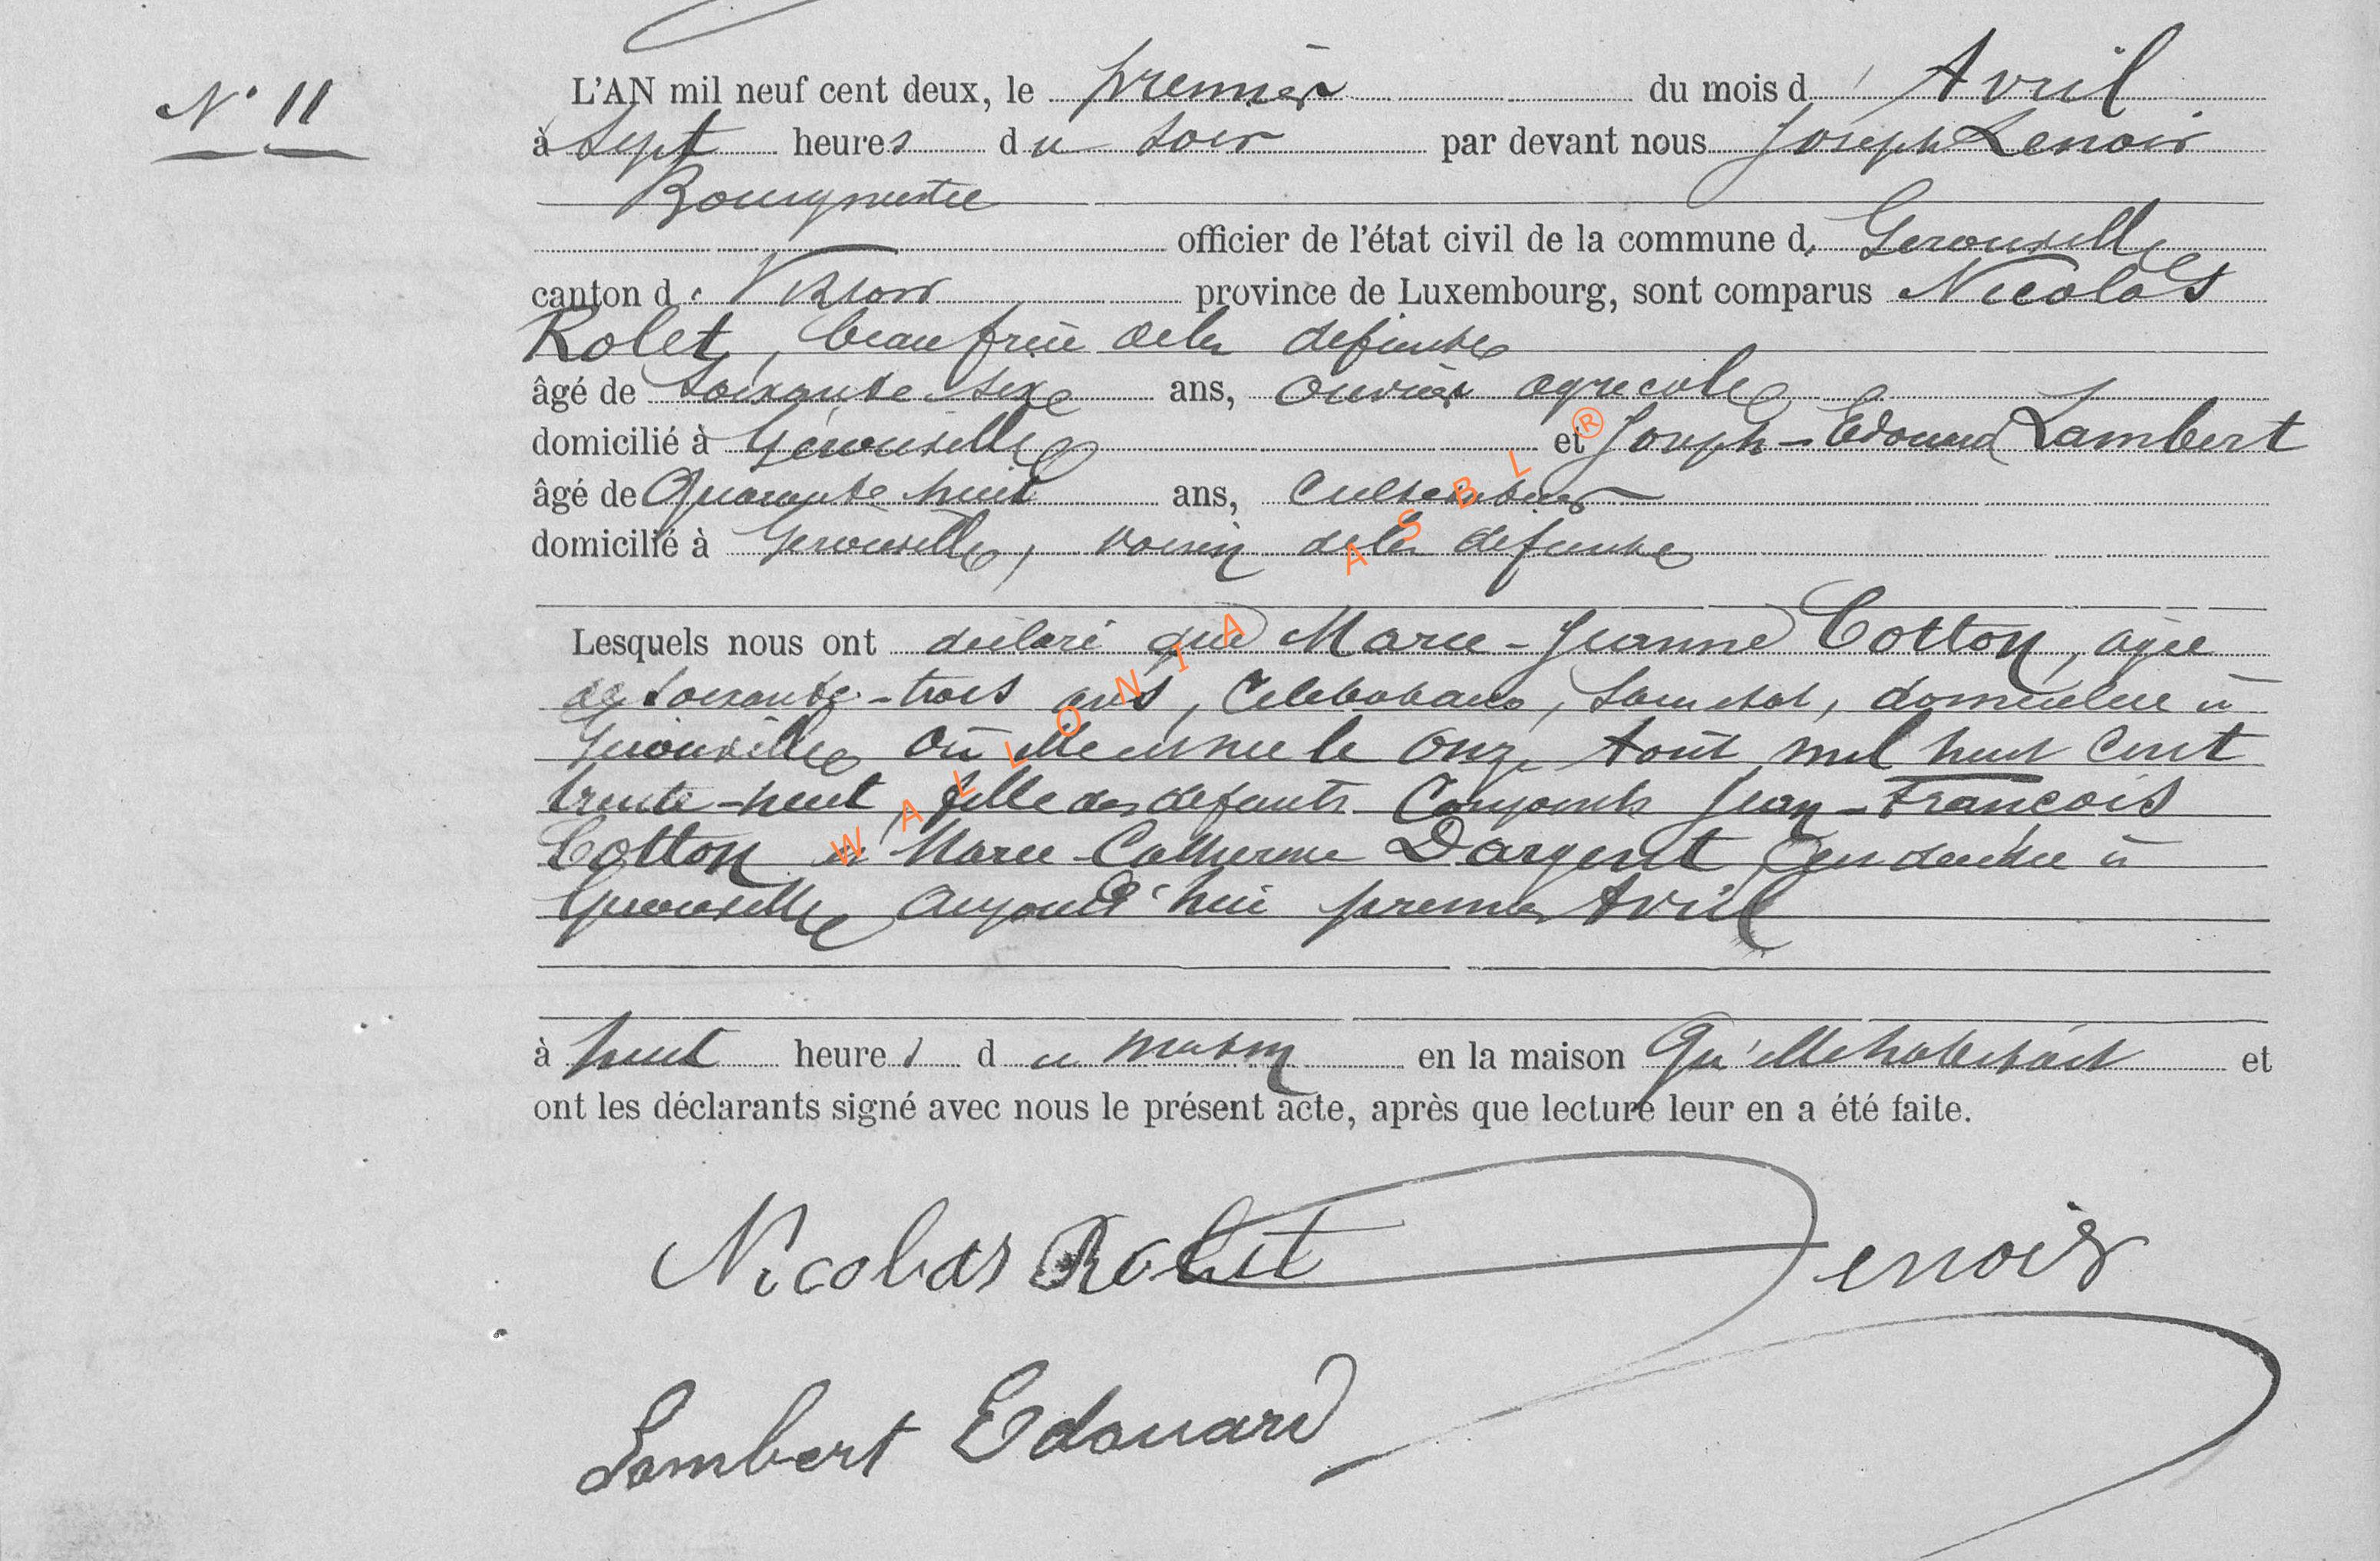 N° 11
L'AN mil neuf cent deux, le premier du mois d'Avril
à Sept heures du soir par devant nous Joseph Lenoir
Bourgmestre
officier de l'état civil de la commune de Gerouville
canton de Virton province de Luxembourg, sont comparus Nicolas
Rolet, beau frère de la defunte
âgé de soixante six ans, ouvrier agricole
domicilié à Gérouville et Joseph-Edouard Lambert
âgé de Quarante huit ans, cultivateur
domicilié à Gérouville, voisin de la défunte
Lesquels nous ont déclaré que Marie-Jeanne Cotton, agée
de soixante-trois ans, Celebataire, sans etat, domiciliée à
Gérouville où elle est née le onze Aout mil huit cent
trente-huit, fille des defunts Conjoints Jean-François
Cotton et Marie-Catherine Dargent, est décédée à
Gérouville aujourd'hui premier Avril
à huit heures du matin en la maison qu'elle habitait et
ont les déclarants signé avec nous le présent acte, après que lecture leur en a été faite.
Nicolas Rolet Lenoir
Lambert Edouard
WALLONIA ASBL ®